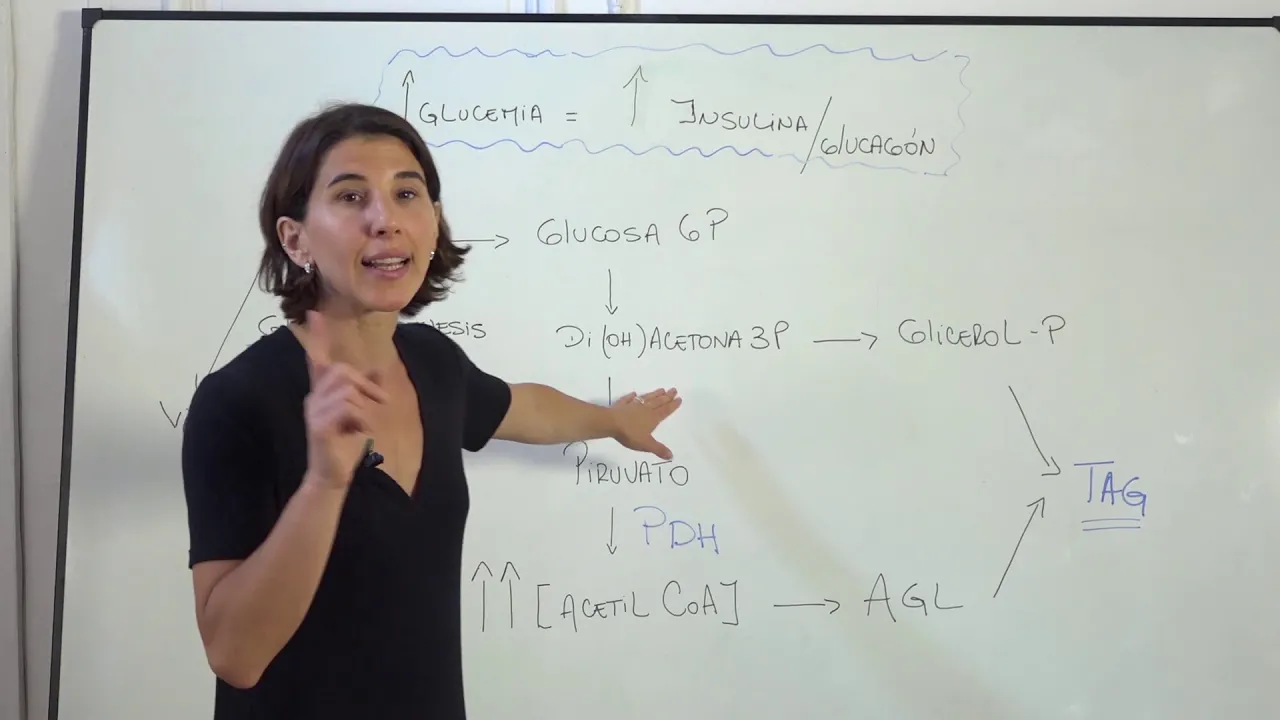 ↑ GLUCEMIA = ↑ INSULINA/GLUCAGÓN
→ GLUCOSA 6P
↓
Di(OH)ACETONA 3P → GLICEROL-P
PIRUVATO
TAG
↓ PDH
↑↑ [ACETIL CoA] → AGL